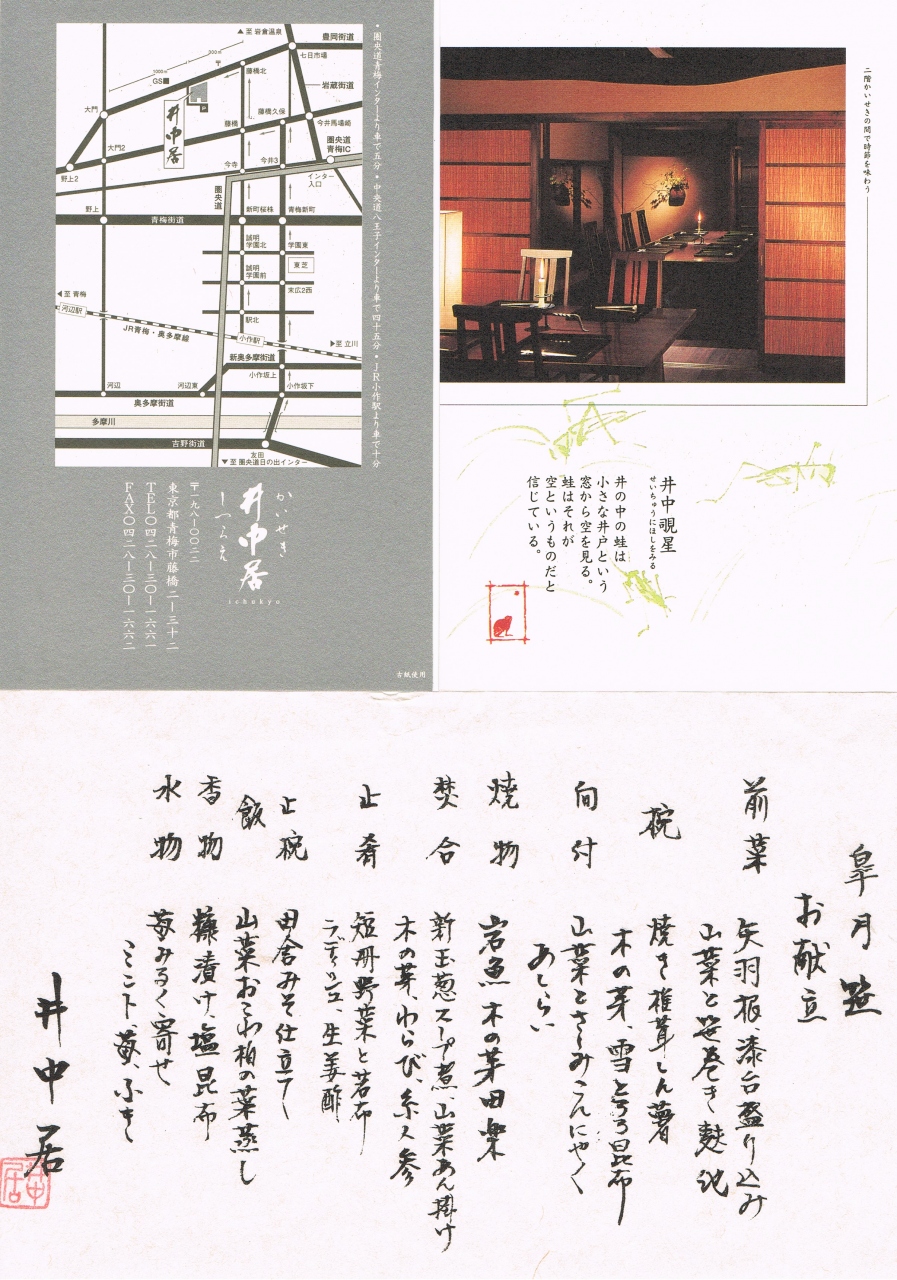 ▲至 岩倉温泉
豊岡街道
七日市場
200m
〒
藤橋北
1000m
GS■
岩蔵街道
大門
P
藤橋久保
井中居
藤橋
今井馬場崎
圏央道
青梅IC
大門2
今寺
今井3
野上2
インター
入口
圏央道
野上
新町桜株
青梅新町
青梅街道
誠明
学園北
学園東
東芝
誠明
学園前
末広2西
◀至 青梅
河辺駅
駅北
JR青梅・奥多摩線
小作駅
▶至 立川
新奥多摩街道
小作坂上
河辺
河辺東
小作坂下
奥多摩街道
多摩川
吉野街道
友田
▼至 圏央道日の出インター
・圏央道青梅インターより車で五分・中央道八王子インターより車で四十五分・JR小作駅より車で十分
かいせき
井中居
しつらえ
ichukyo
〒一九八―〇〇二二
東京都青梅市藤橋二―三十二
TEL〇四二八―三〇―一六六一
FAX〇四二八―三〇―一六六二
古紙使用
二階かいせきの間で時節を味わう
井中覗星
せいちゅうにほしをみる
井の中の蛙は
小さな井戸という
窓から空を見る。
蛙はそれが
空というものだと
信じている。
皐月 笹
お献立
前菜 矢羽板、漆台盛り込み
山菜と笹巻き麩他
椀 焼き椎茸しん薯
木の芽、雪とろろ昆布
向付 山菜とさしみこんにゃく
あしらい
焼物 岩魚 木の芽田楽
焚合 新玉葱スープ煮、山菜あん掛け
木の芽、わらび、糸人参
止肴 短冊野菜と若布
ラディッシュ、生姜酢
止椀 田舎みそ仕立て
飯 山菜おこわ柏の葉蒸し
香物 糠漬け、塩昆布
水物 苺みるく寄せ
ミント、苺、ふき
井中居
井中居